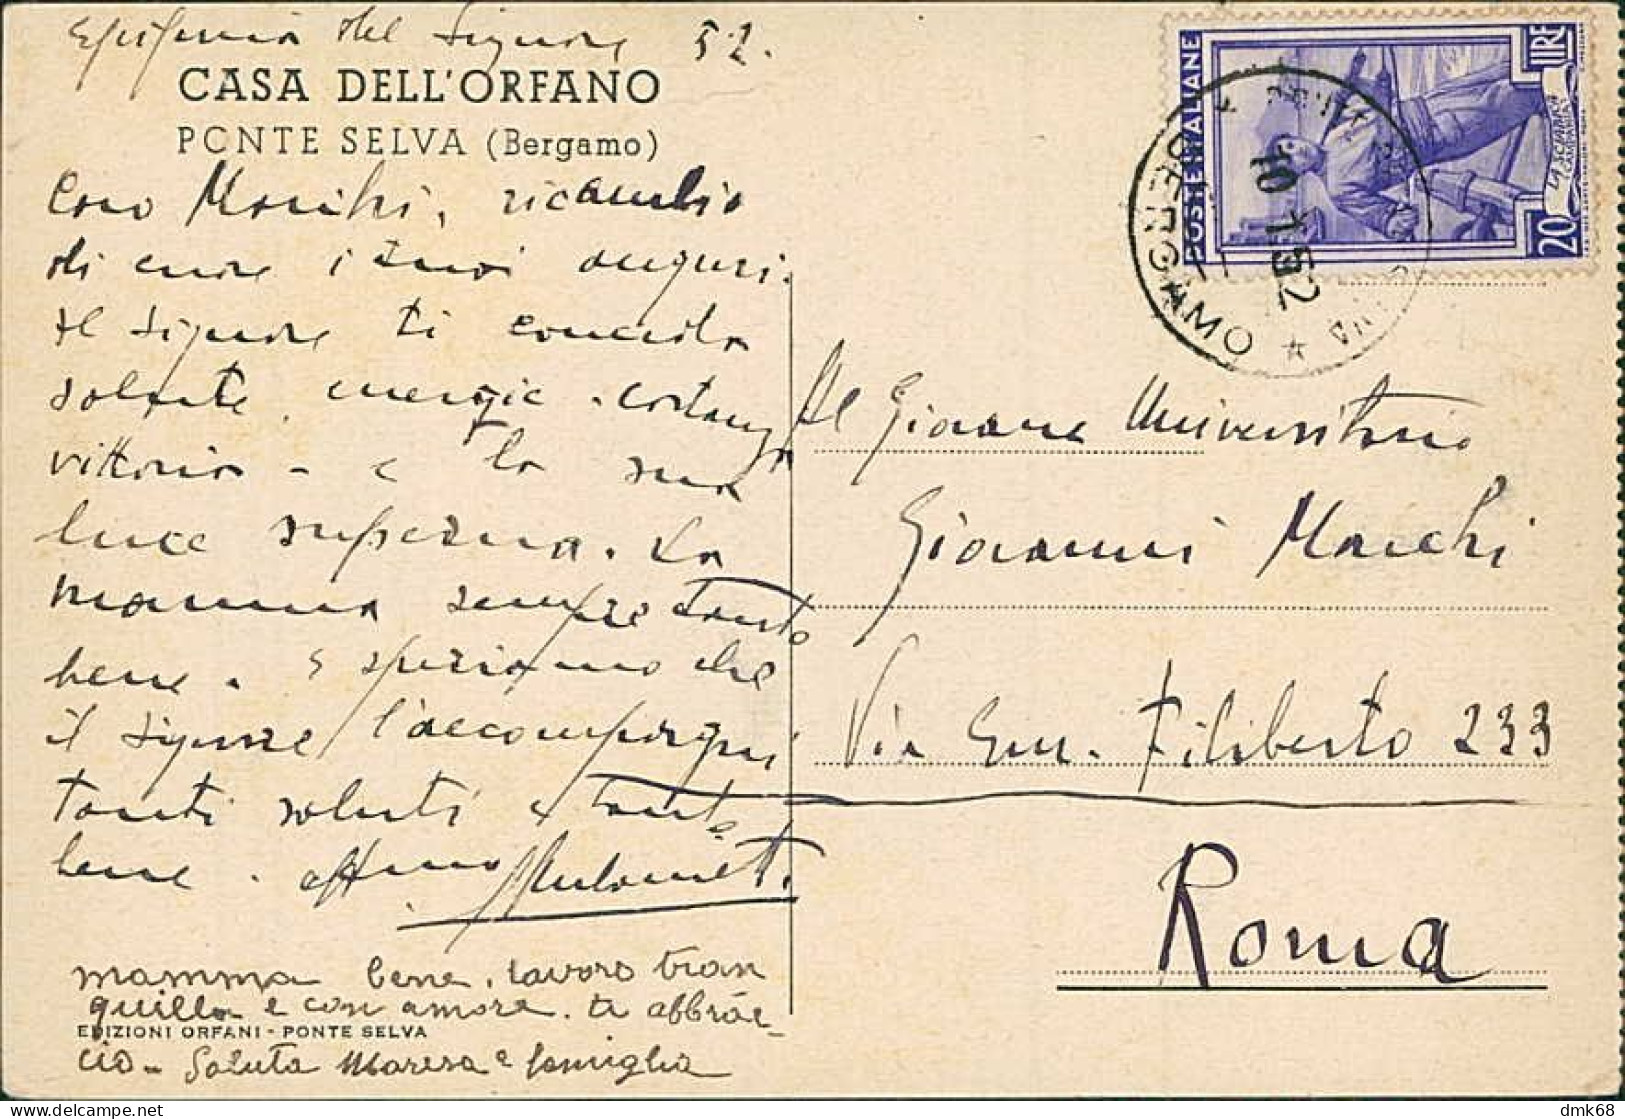 Epifania del Signore 52.
CASA DELL'ORFANO
PONTE SELVA (Bergamo)
Caro Marchi, ricambio
di cuore i tuoi auguri.
Il Signore ti conceda
salute, energie, costanza
vittoria - e la sua
luce superna. La
mamma sempre tanto
bene. E speriamo che
il Signore l'accompagni
Tanti saluti e tanto
bene. aff.mo
mamma bene. lavoro tran
quilla e con amore. ti abbrac-
EDIZIONI ORFANI - PONTE SELVA
cio - Saluta Maresa e famiglia
POSTE ITALIANE
LIRE 20
LA SCIABICA
CAMPANIA
10 1 52
BERGAMO
Al Giovane Universitario
Giovanni Marchi
Via Em. Filiberto 233
Roma
dmk68